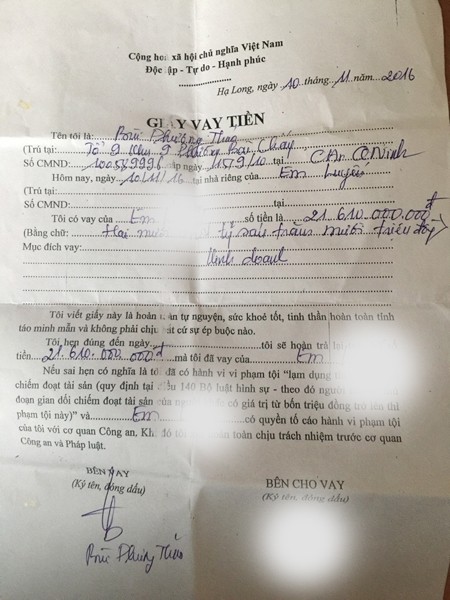 Cộng hoà xã hội chủ nghĩa Việt Nam
Độc lập - Tự do - Hạnh phúc
Hạ Long, ngày 10 tháng 11 năm 2016
GIẤY VAY TIỀN
Tên tôi là: Bùi Phương Thảo
(Trú tại: Tổ 9 Khu 9 Phường Bãi Cháy
Số CMND: 100589996 cấp ngày 1579/10 tại CA. Q Ninh
Hôm nay, ngày 10/11/16 tại nhà riêng của Em Luyến
(Trú tại:
Số CMND: tại
Tôi có vay của Em số tiền là 21.610.000.000đ
(Bằng chữ: Hai mươi tỷ sáu trăm mười triệu đ)
Mục đích vay:
Kinh doanh
Tôi viết giấy này là hoàn toàn tự nguyện, sức khoẻ tốt, tinh thần hoàn toàn tỉnh
táo minh mẫn và không phải chịu bất cứ sự ép buộc nào.
Tôi hẹn đúng đến ngày tôi sẽ hoàn trả
tiền 21.610.000.000đ mà tôi đã vay của Em
Nếu sai hẹn có nghĩa là tôi đã có hành vi vi phạm tội "lạm dụng
chiếm đoạt tài sản (quy định tại điều 140 Bộ luật hình sự - theo đó người
đoạn gian dối chiếm đoạt tài sản của có giá trị từ bốn triệu đồng trở lên thì
phạm tội này)" và Em có quyền tố cáo hành vi phạm tội
của tôi với cơ quan Công an, Khi đó tôi toàn chịu trách nhiệm trước cơ quan
Công an và Pháp luật.
BÊN VAY
(Ký tên, đóng dấu)
BÊN CHO VAY
(Ký tên, đóng dấu)
Bùi Phương Thảo